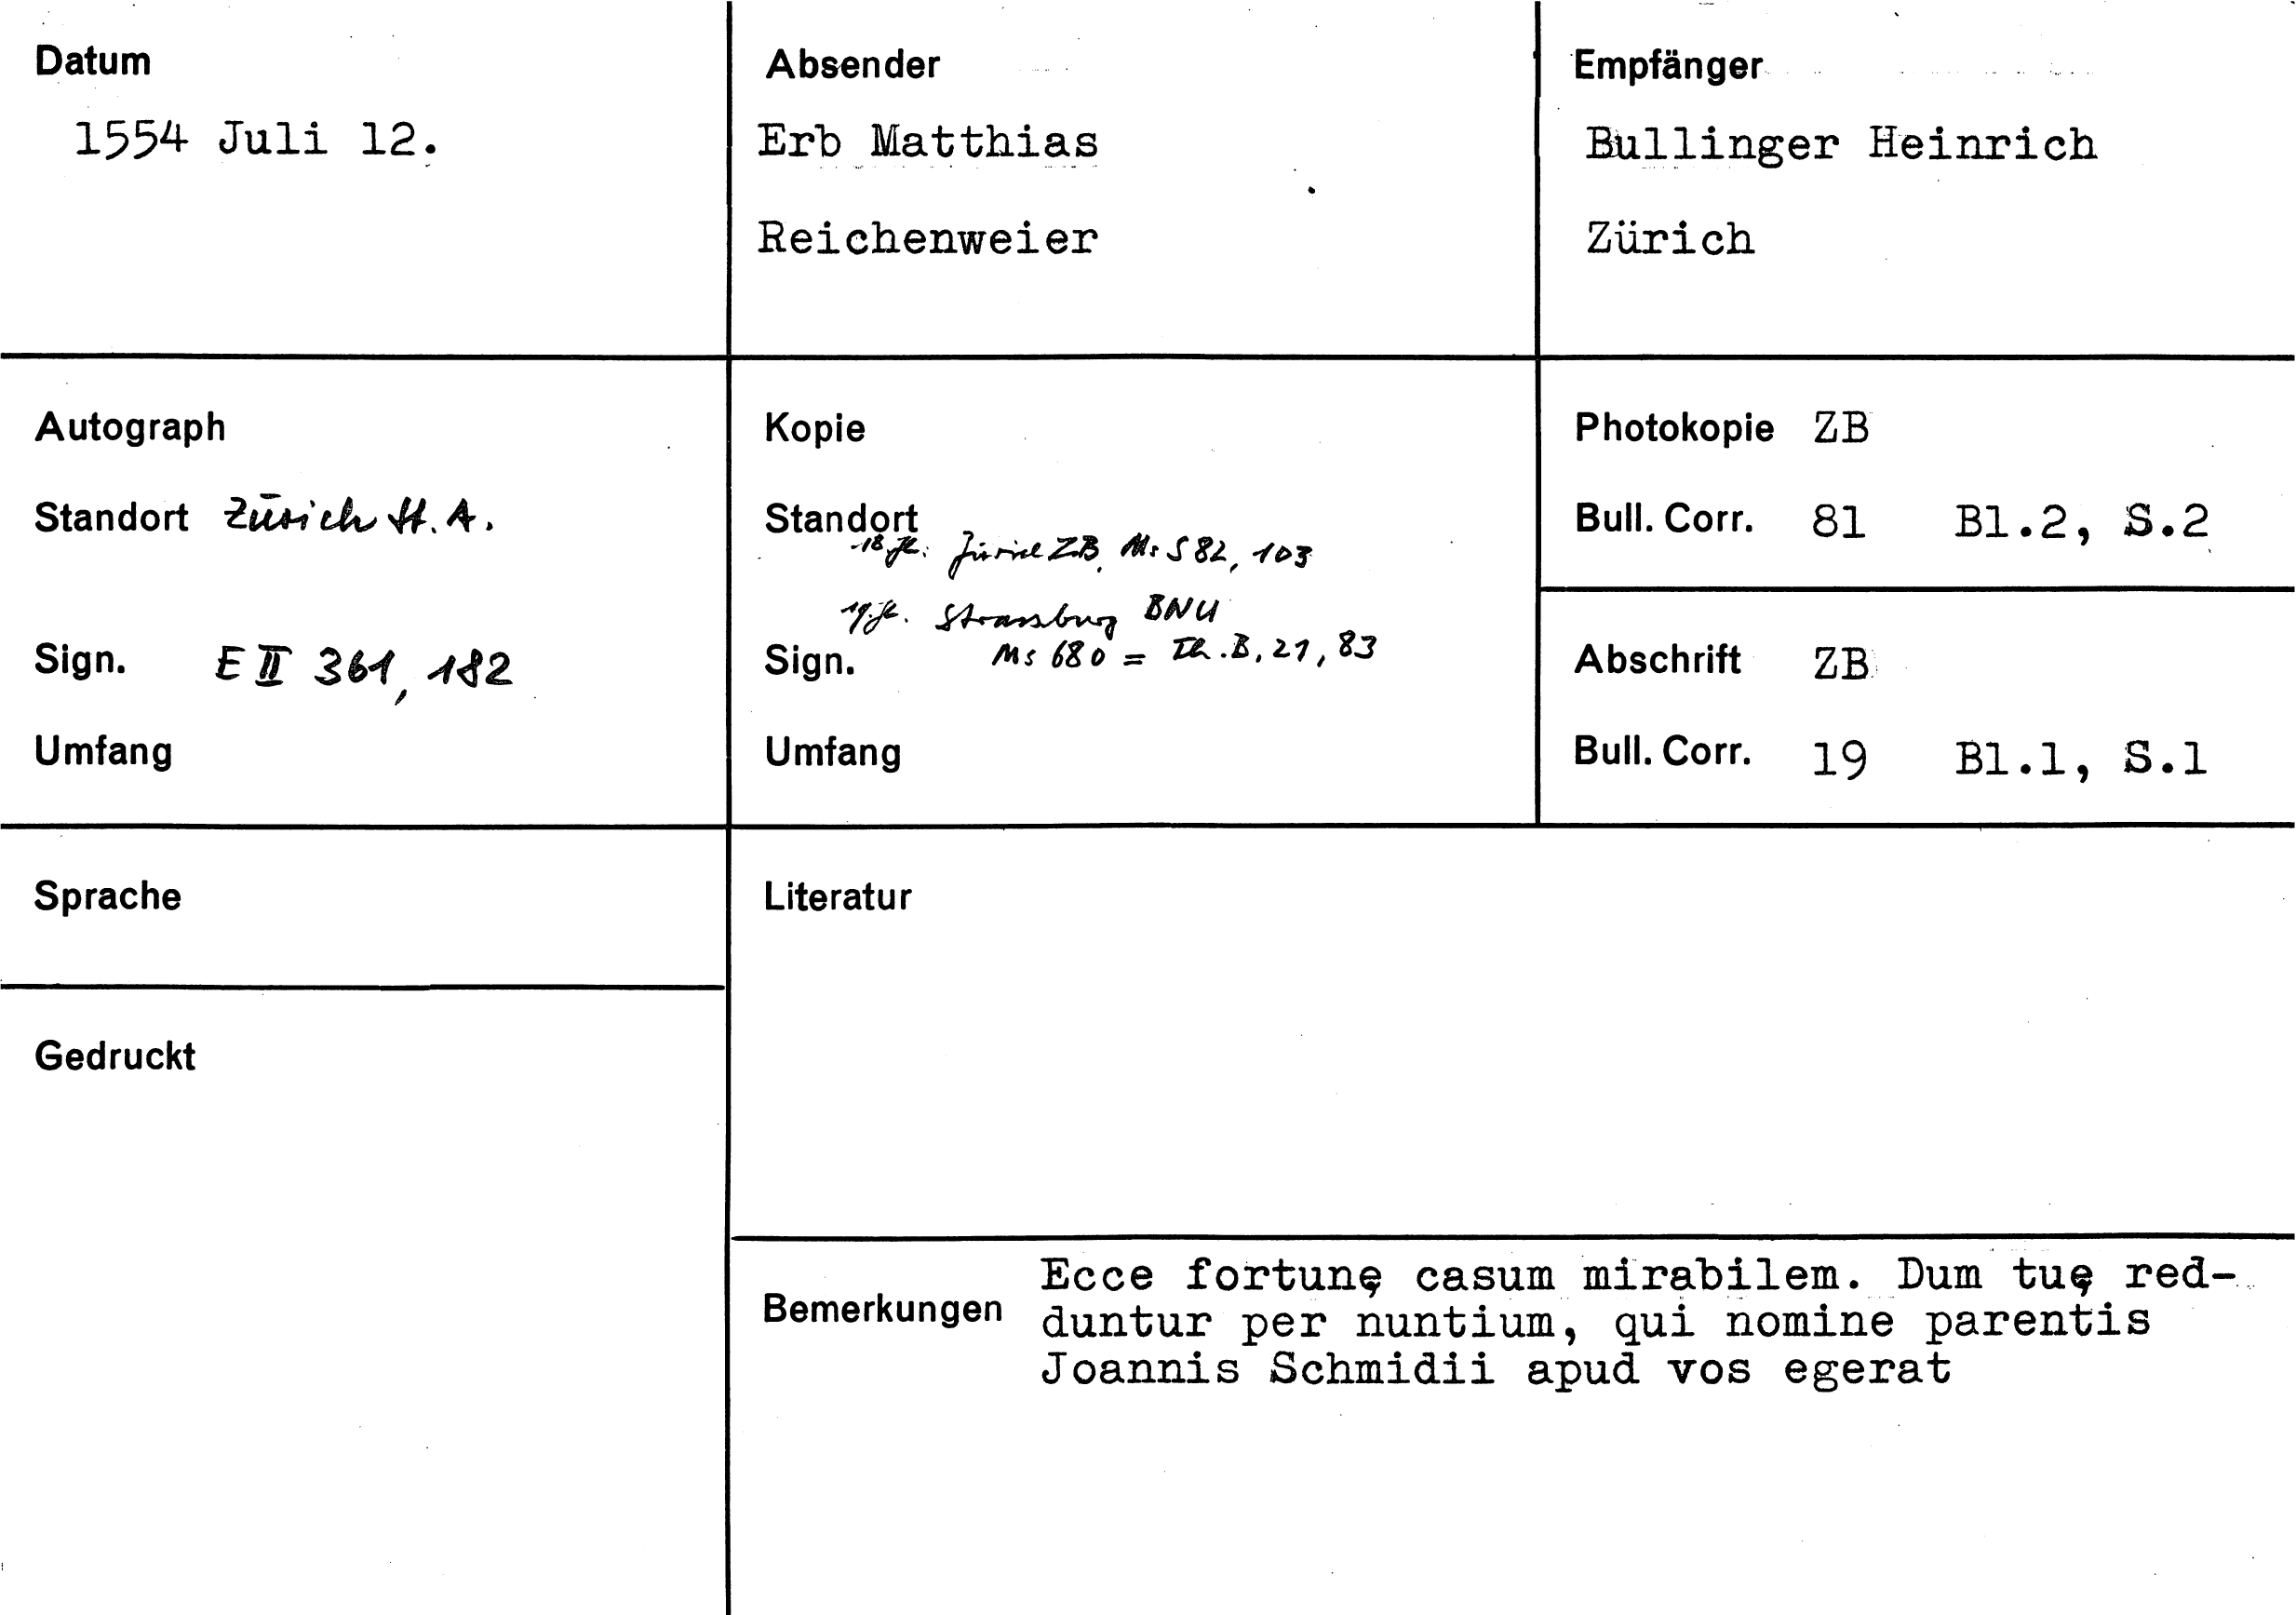 Datum
1554 Juli 12.
Absender
Erb Matthias
Reichenweier
Empfänger
Bullinger Heinrich
Zürich
Autograph
Standort Zürich St. A.
Sign. E II 361, 182
Umfang
Kopie
Standort
18. Jh. Zürich ZB, Ms S 82, 103
19. Jh. Strassburg BNU
Sign. Ms 680 = Th. B, 21, 83
Umfang
Photokopie ZB
Bull. Corr. 81 Bl.2, S.2
Abschrift ZB
Bull. Corr. 19 Bl.1, S.1
Sprache
Literatur
Gedruckt
Bemerkungen
Ecce fortunę casum mirabilem. Dum tuę red-
duntur per nuntium, qui nomine parentis
Joannis Schmidii apud vos egerat